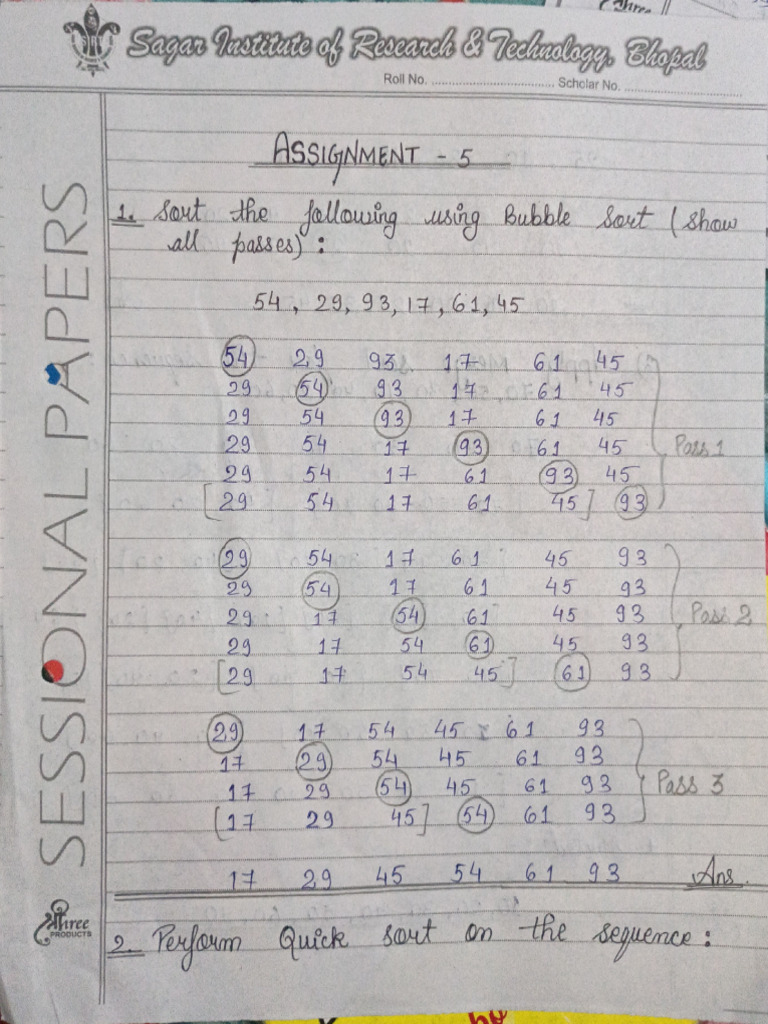 Three
Sagar Institute of Research & Technology, Bhopal
Roll No. .................................. Scholar No. ................................
SESSIONAL PAPERS
ASSIGNMENT - 5
1. Sort the following using Bubble Sort (show
all passes) :
54, 29, 93, 17, 61, 45
54 29 93 17 61 45
29 54 93 17 61 45
29 54 93 17 61 45
29 54 17 93 61 45 Pass 1
29 54 17 61 93 45
[29 54 17 61 45] 93
29 54 17 61 45 93
29 54 17 61 45 93
29 17 54 61 45 93 Pass 2
29 17 54 61 45 93
[29 17 54 45] 61 93
29 17 54 45 61 93
17 29 54 45 61 93
17 29 54 45 61 93 Pass 3
[17 29 45] 54 61 93
17 29 45 54 61 93 Ans.
2. Perform Quick sort on the sequence :
श्रीhree
PRODUCTS